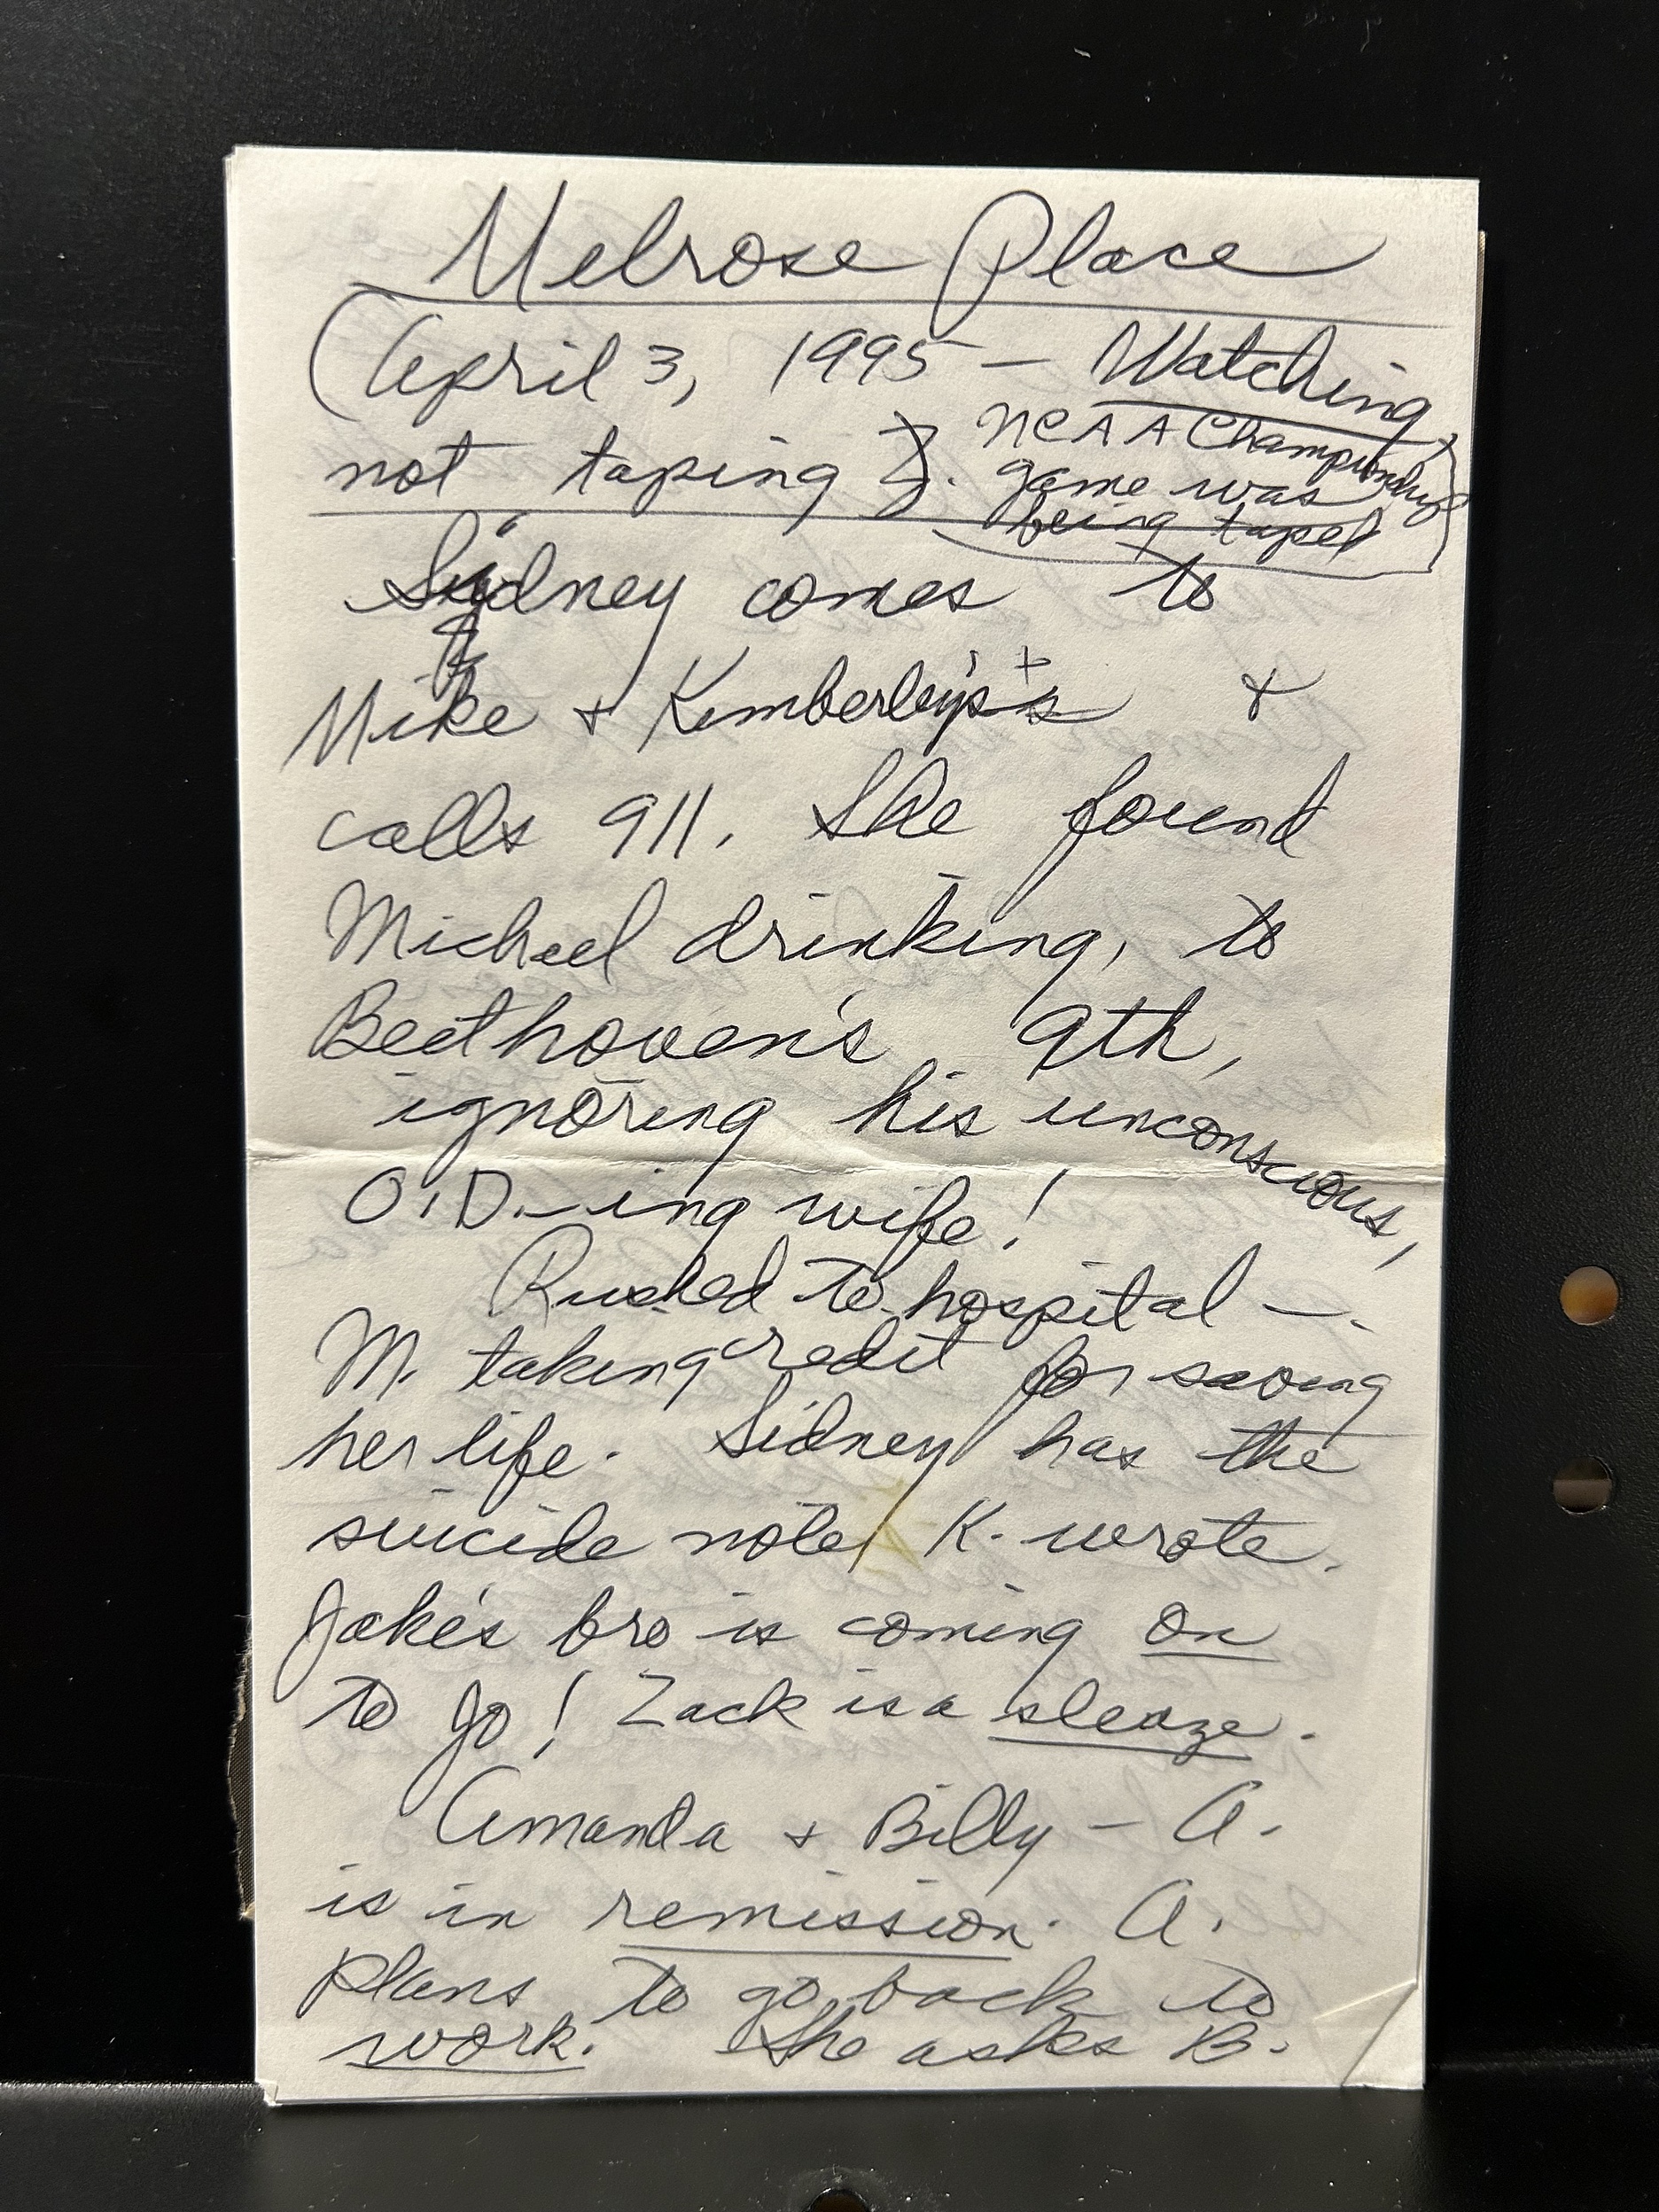 Melrose Place
(April 3, 1995 — Watching
not taping). NCAA Championship
game was
being taped
Sidney comes to
Mike + Kimberley's +
calls 911. She found
Michael drinking, to
Beethoven's 9th,
ignoring his unconscious,
O.D.-ing wife!
Rushed to hospital —.
M. taking credit for saving
her life. Sidney has the
suicide note K. wrote.
Jake's bro is coming on
to Jo! Zack is a sleaze.
Amanda + Billy — A.
is in remission. A.
plans to go back to
work. She asks B.